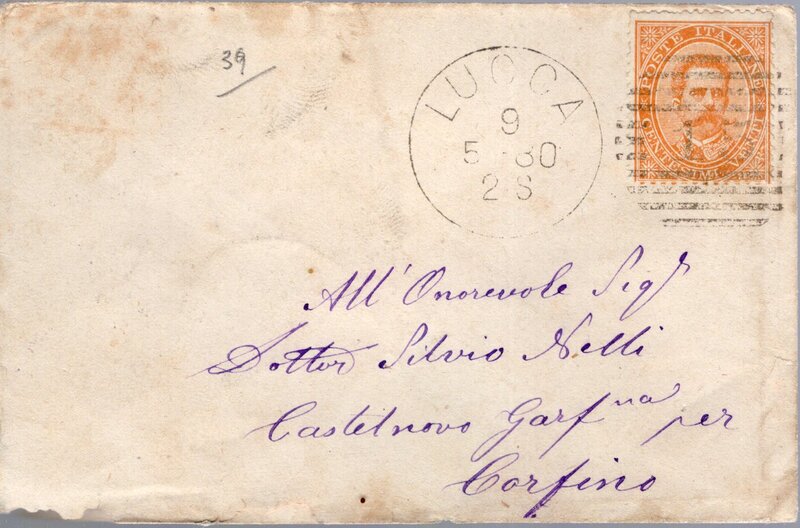 39
LUCCA
9
5 80
2 S
POSTE ITALIANE
CENTESIMI VENTI
All' Onorevole Sigr
Dottor Silvio Nelli
Castelnovo Garfna per
Corfino